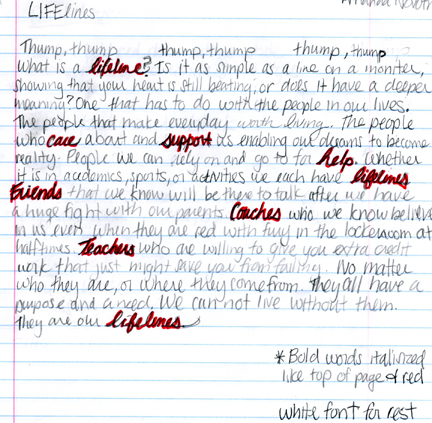 LIFElines
Thump, thump thump, thump thump, thump
what is a lifeline? Is it as simple as a line on a moniter,
showing that your heart is still beating, or does it have a deeper
meaning? One that has to do with the people in our lives.
The people that make everyday worth living. The people
who care about and support us enabling our dreams to become
reality. People we can rely on and go to for help. Whether
it is in academics, sports, or activities we each have lifelines
Friends that we know will be there to talk after we have
a huge fight with our parents Coaches who we know believe
in us even when they are red with fury in the lockeroom at
halftimes. Teachers who are willing to give you extra credit
work that just might save you from failing. No matter
who they are, or where they come from. They all have a
purpose and a need. We can not live without them.
They are our lifelines.
*Bold words italisized
like top of page & red
white font for rest